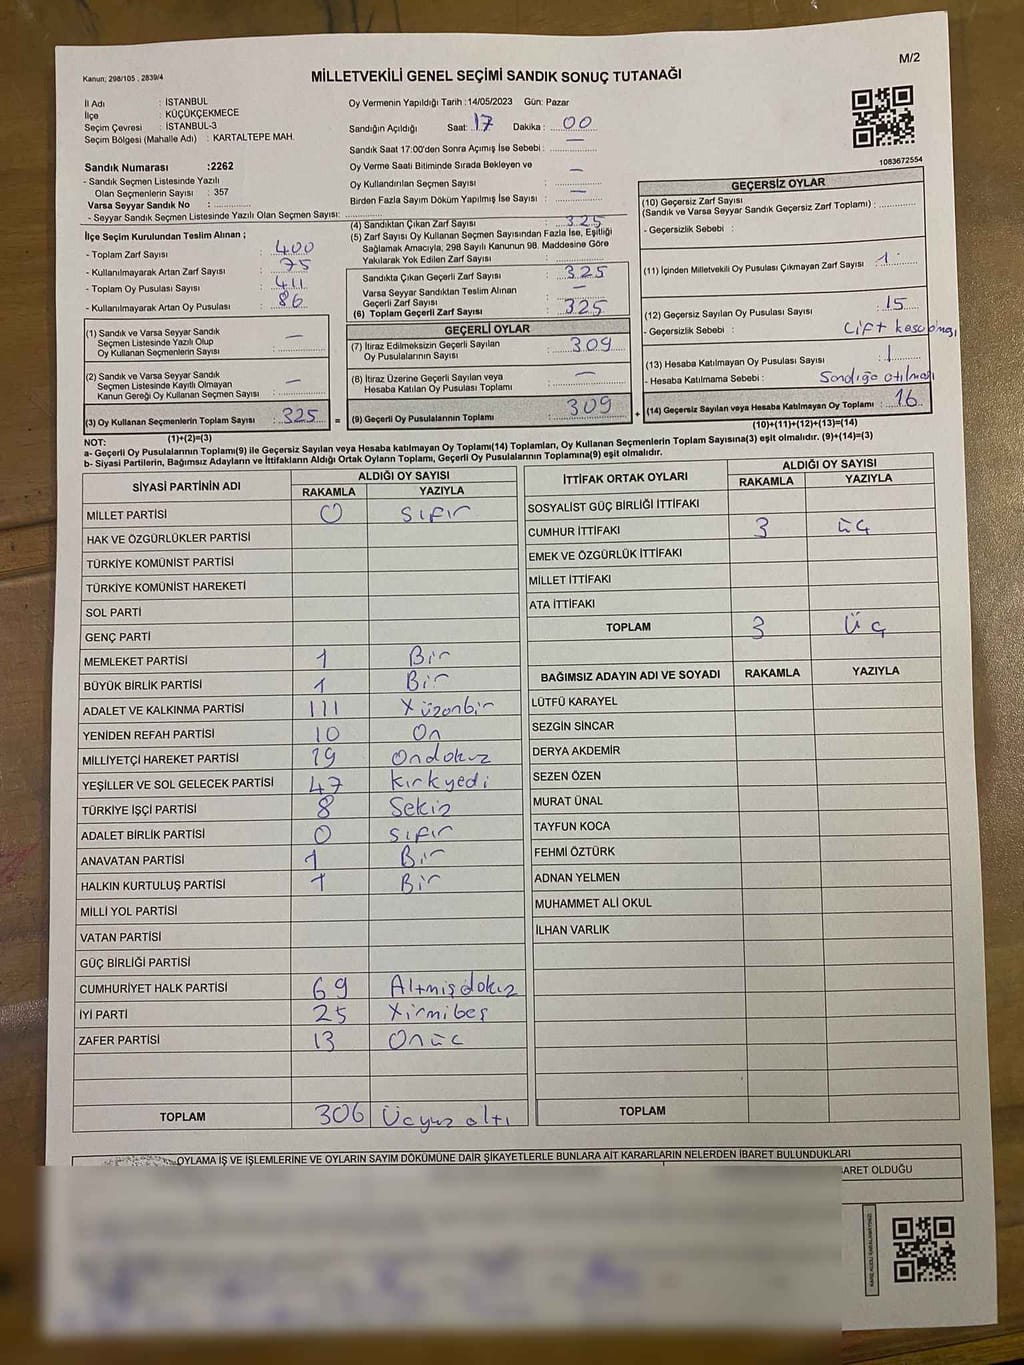 M/2
Kanun; 298/105 , 2839/4
MİLLETVEKİLİ GENEL SEÇİMİ SANDIK SONUÇ TUTANAĞI
İl Adı : İSTANBUL
İlçe : KÜÇÜKÇEKMECE
Seçim Çevresi : İSTANBUL-3
Seçim Bölgesi (Mahalle Adı) : KARTALTEPE MAH.
Sandık Numarası :2262
- Sandık Seçmen Listesinde Yazılı
Olan Seçmenlerin Sayısı : 357
Varsa Seyyar Sandık No :
- Seyyar Sandık Seçmen Listesinde Yazılı Olan Seçmen Sayısı:
Oy Vermenin Yapıldığı Tarih :14/05/2023 Gün: Pazar
Sandığın Açıldığı Saat: 17 Dakika : 00
Sandık Saat 17:00'den Sonra Açımış İse Sebebi : —
Oy Verme Saati Bitiminde Sırada Bekleyen ve
Oy Kullandırılan Seçmen Sayısı : —
Birden Fazla Sayım Döküm Yapılmış İse Sayısı : —
1083672554
İlçe Seçim Kurulundan Teslim Alınan ;
- Toplam Zarf Sayısı : 400
- Kullanılmayarak Artan Zarf Sayısı : 75
- Toplam Oy Pusulası Sayısı : 411
- Kullanılmayarak Artan Oy Pusulası : 86
(1) Sandık ve Varsa Seyyar Sandık
Seçmen Listesinde Yazılı Olup
Oy Kullanan Seçmenlerin Sayısı : —
(2) Sandık ve Varsa Seyyar Sandık
Seçmen Listesinde Kayıtlı Olmayan
Kanun Gereği Oy Kullanan Seçmen Sayısı : —
(3) Oy Kullanan Seçmenlerin Toplam Sayısı : 325 =
(1)+(2)=(3)
(4) Sandıktan Çıkan Zarf Sayısı : 325
(5) Zarf Sayısı Oy Kullanan Seçmen Sayısından Fazla İse, Eşitliği
Sağlamak Amacıyla; 298 Sayılı Kanunun 98. Maddesine Göre
Yakılarak Yok Edilen Zarf Sayısı :
Sandıkta Çıkan Geçerli Zarf Sayısı : 325
Varsa Seyyar Sandıktan Teslim Alınan
Geçerli Zarf Sayısı : —
(6) Toplam Geçerli Zarf Sayısı : 325
GEÇERLİ OYLAR
(7) İtiraz Edilmeksizin Geçerli Sayılan
Oy Pusulalarının Sayısı : 309
(8) İtiraz Üzerine Geçerli Sayılan veya
Hesaba Katılan Oy Pusulası Toplamı : —
(9) Geçerli Oy Pusulalarının Toplamı : 309 +
GEÇERSİZ OYLAR
(10) Geçersiz Zarf Sayısı
(Sandık ve Varsa Seyyar Sandık Geçersiz Zarf Toplamı) :
- Geçersizlik Sebebi :
(11) İçinden Milletvekili Oy Pusulası Çıkmayan Zarf Sayısı : 1
(12) Geçersiz Sayılan Oy Pusulası Sayısı : 15
- Geçersizlik Sebebi : Çift
(13) Hesaba Katılmayan Oy Pusulası Sayısı : 1
- Hesaba Katılmama Sebebi : Sandığa
(14) Geçersiz Sayılan veya Hesaba Katılmayan Oy Toplamı : 16
(10)+(11)+(12)+(13)=(14)
NOT:
a- Geçerli Oy Pusulalarının Toplamı(9) ile Geçersiz Sayılan veya Hesaba katılmayan Oy Toplamı(14) Toplamları, Oy Kullanan Seçmenlerin Toplam Sayısına(3) eşit olmalıdır. (9)+(14)=(3)
b- Siyasi Partilerin, Bağımsız Adayların ve İttifakların Aldığı Ortak Oyların Toplamı, Geçerli Oy Pusulalarının Toplamına(9) eşit olmalıdır.
SİYASİ PARTİNİN ADI ALDIĞI OY SAYISI
RAKAMLA YAZIYLA
MİLLET PARTİSİ 0 sıfır
HAK VE ÖZGÜRLÜKLER PARTİSİ
TÜRKİYE KOMÜNİST PARTİSİ
TÜRKİYE KOMÜNİST HAREKETİ
SOL PARTİ
GENÇ PARTİ
MEMLEKET PARTİSİ 1 Bir
BÜYÜK BİRLİK PARTİSİ 1 Bir
ADALET VE KALKINMA PARTİSİ 111 Yüzonbir
YENİDEN REFAH PARTİSİ 10 On
MİLLİYETÇİ HAREKET PARTİSİ 19 Ondokuz
YEŞİLLER VE SOL GELECEK PARTİSİ 47 kırkyedi
TÜRKİYE İŞÇİ PARTİSİ 8 Sekiz
ADALET BİRLİK PARTİSİ 0 sıfır
ANAVATAN PARTİSİ 1 Bir
HALKIN KURTULUŞ PARTİSİ 1 Bir
MİLLİ YOL PARTİSİ
VATAN PARTİSİ
GÜÇ BİRLİĞİ PARTİSİ
CUMHURİYET HALK PARTİSİ 69 Altmışdokuz
İYİ PARTİ 25 Yirmibeş
ZAFER PARTİSİ 13 Onüç
TOPLAM 306 Üçyüz altı
İTTİFAK ORTAK OYLARI ALDIĞI OY SAYISI
RAKAMLA YAZIYLA
SOSYALİST GÜÇ BİRLİĞİ İTTİFAKI
CUMHUR İTTİFAKI 3 üç
EMEK VE ÖZGÜRLÜK İTTİFAKI
MİLLET İTTİFAKI
ATA İTTİFAKI
TOPLAM 3 Üç
BAĞIMSIZ ADAYIN ADI VE SOYADI RAKAMLA YAZIYLA
LÜTFÜ KARAYEL
SEZGİN SİNCAR
DERYA AKDEMİR
SEZEN ÖZEN
MURAT ÜNAL
TAYFUN KOCA
FEHMİ ÖZTÜRK
ADNAN YELMEN
MUHAMMET ALİ OKUL
İLHAN VARLIK
TOPLAM
OYLAMA İŞ VE İŞLEMLERİNE VE OYLARIN SAYIM DÖKÜMÜNE DAİR ŞİKAYETLERLE BUNLARA AİT KARARLARIN NELERDEN İBARET BULUNDUKLARI
BARET OLDUĞU